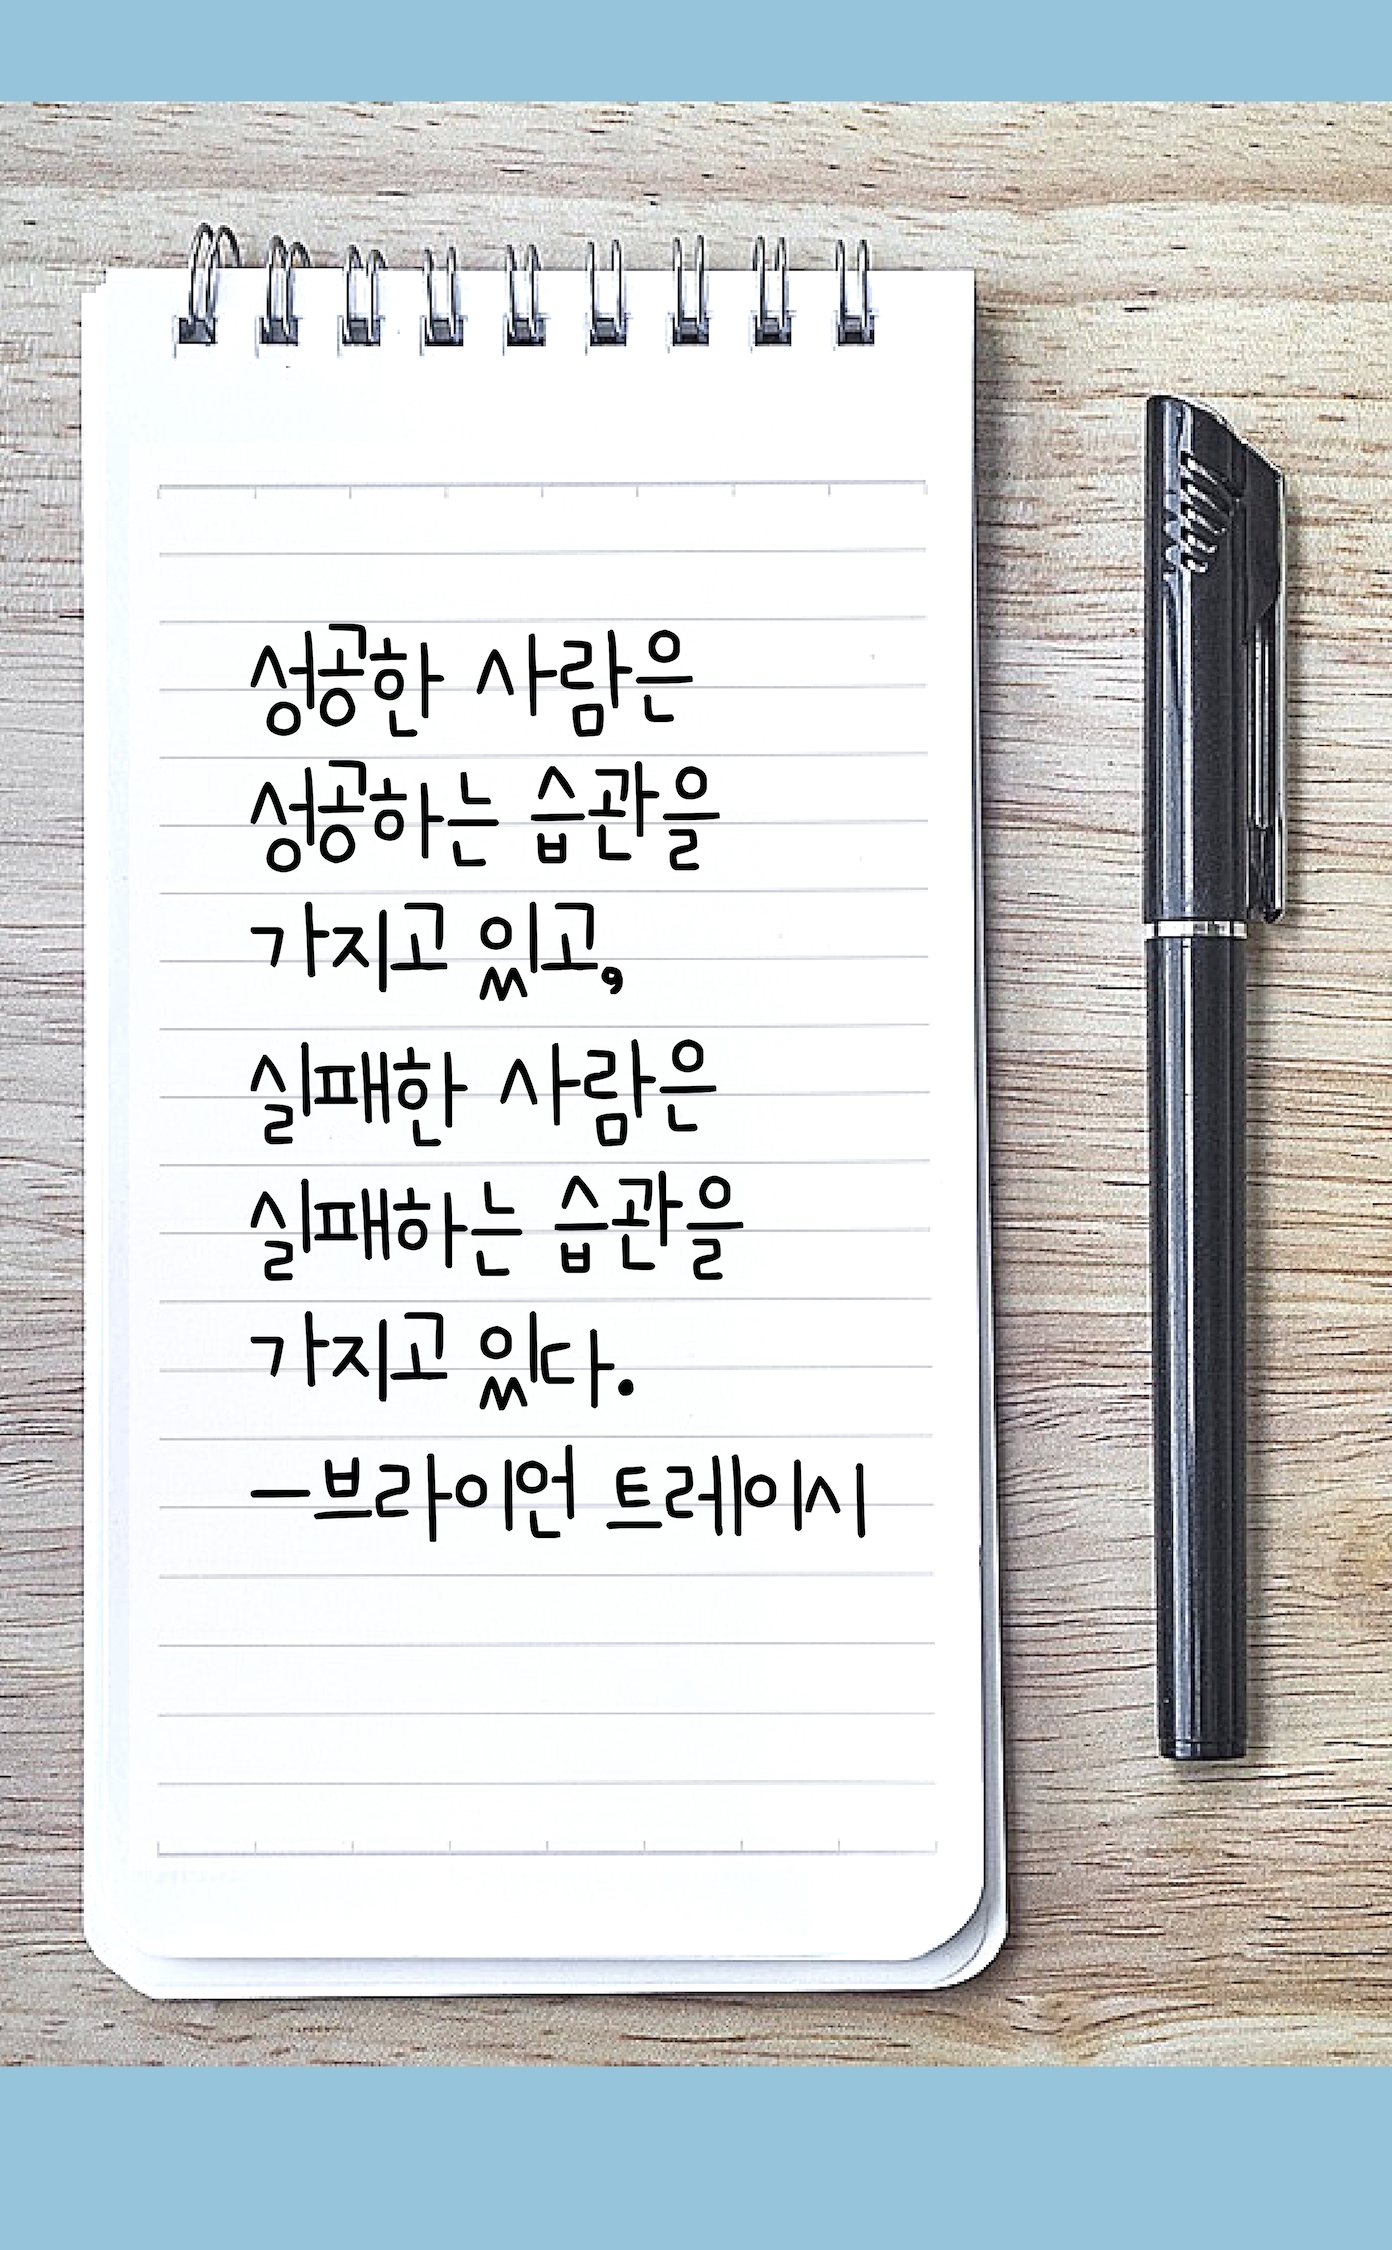 성공한 사람은
성공하는 습관을
가지고 있고,
실패한 사람은
실패하는 습관을
가지고 있다.
-브라이언 트레이시